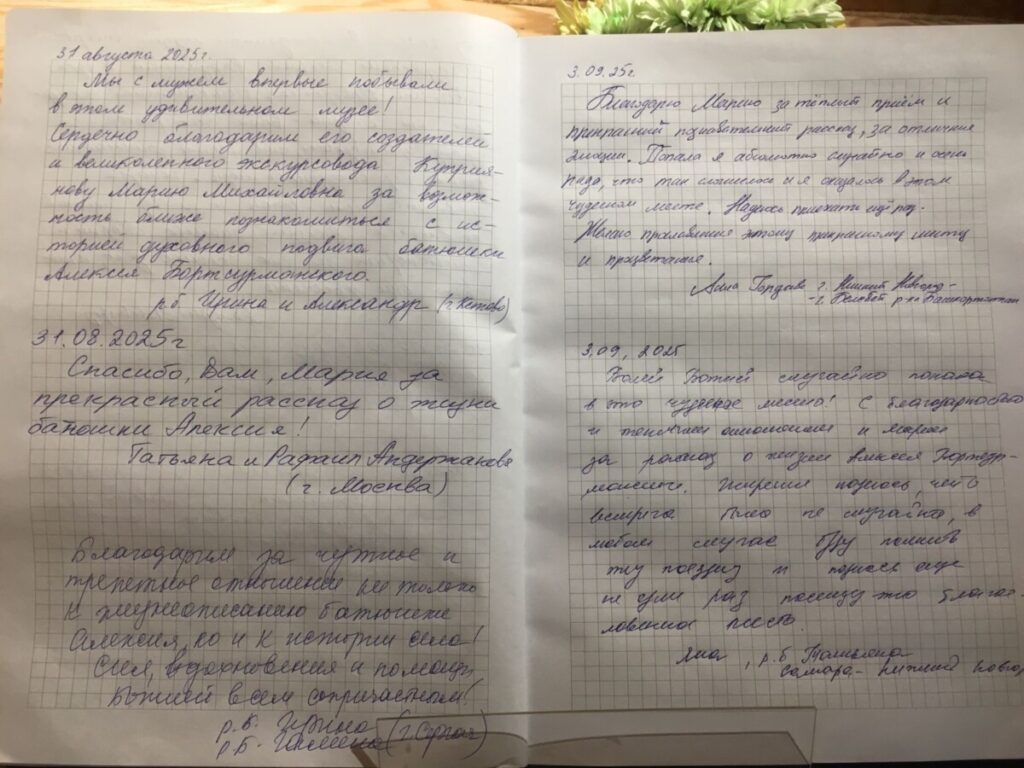 31 августа 2025 г.
Мы с мужем впервые побывали
в этом удивительном музее!
Сердечно благодарим его создателей
и великолепного экскурсовода Куприя-
нову Марию Михайловна за возмож-
ность ближе познакомиться с ис-
торией духовного подвига батюшки
Алексия Бортсурманского.
р.б. Ирина и Александр (г. Кстово)
31.08.2025г
Спасибо, Вам, Мария за
прекрасный рассказ о жизни
батюшки Алексия!
Татьяна и Рафаил Андержанова
(г. Москва)
Благодарим за чуткое и
трепетное отношение не только
к жизнеописанию батюшки
Алексия, но и к истории села!
Сил, вдохновения и помощи
Божией всем сопричастным!
р.Б. Ирина
р.Б. (г. Сергач)
3.09.25г.
Благодарю Марию за тёплый приём и
прекрасный познавательный рассказ, за отличные
эмоции. Попала я абсолютно случайно и очень
рада, что так сложилось и я оказалась в этом
чудесном месте. Надеюсь приехать ещё раз.
процветания этому прекрасному месту
и процветанье.
Анна г. Нижний Новгород-
3.09, 2025
Волей Божией случайно попала
в это чудное место! С благодарностью
и тёплыми и Марии
за рассказ о жизни Алексея Бортсур-
манского. надеюсь, что
встреча была не случайна, в
любом случае буду помнить
эту поездку и надеюсь еще
не один раз посещу это благос-
ловенное место.
Яна, р.Б. Татьяна
Самара - Нижний Новгород